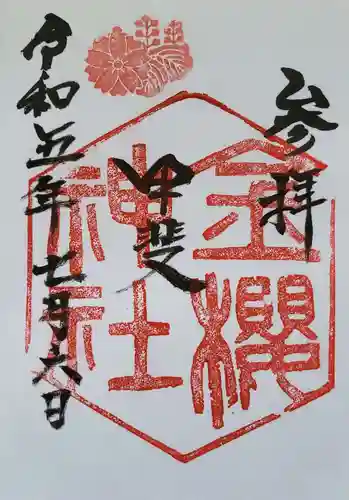 参拝
甲斐
金櫻
神社
令和五年七月六日